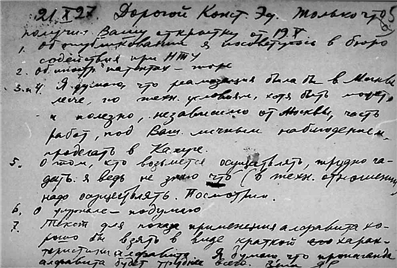 21.X 27 Дорогой Конст. Эд. Только что
получил Вашу открытку от 19 X
1. Об опубликовании я посоветуюсь в бюро
содействия при НТУ
2. Об иностр. патентах – тоже
3 и 4. Я думаю, что реализация была бы в Москве
легче, по техн. условиям, хотя быть может
и полезно, независимо от Москвы, часть
работ, под Ваш. личным наблюдением,
проделать в Калуге.
5. О том, кто возьмется осуществлять, трудно га-
дать. Я ведь не знаю что (в техн. отношении)
надо осуществлять. Посмотрим.
6. О журнале – подумаю
7. Текст для показа применения алфавита хо-
рошо бы взять в виде краткой его харак-
теристики алфавита. Я думаю, что пропаганда
алфавита будет труднее всего.